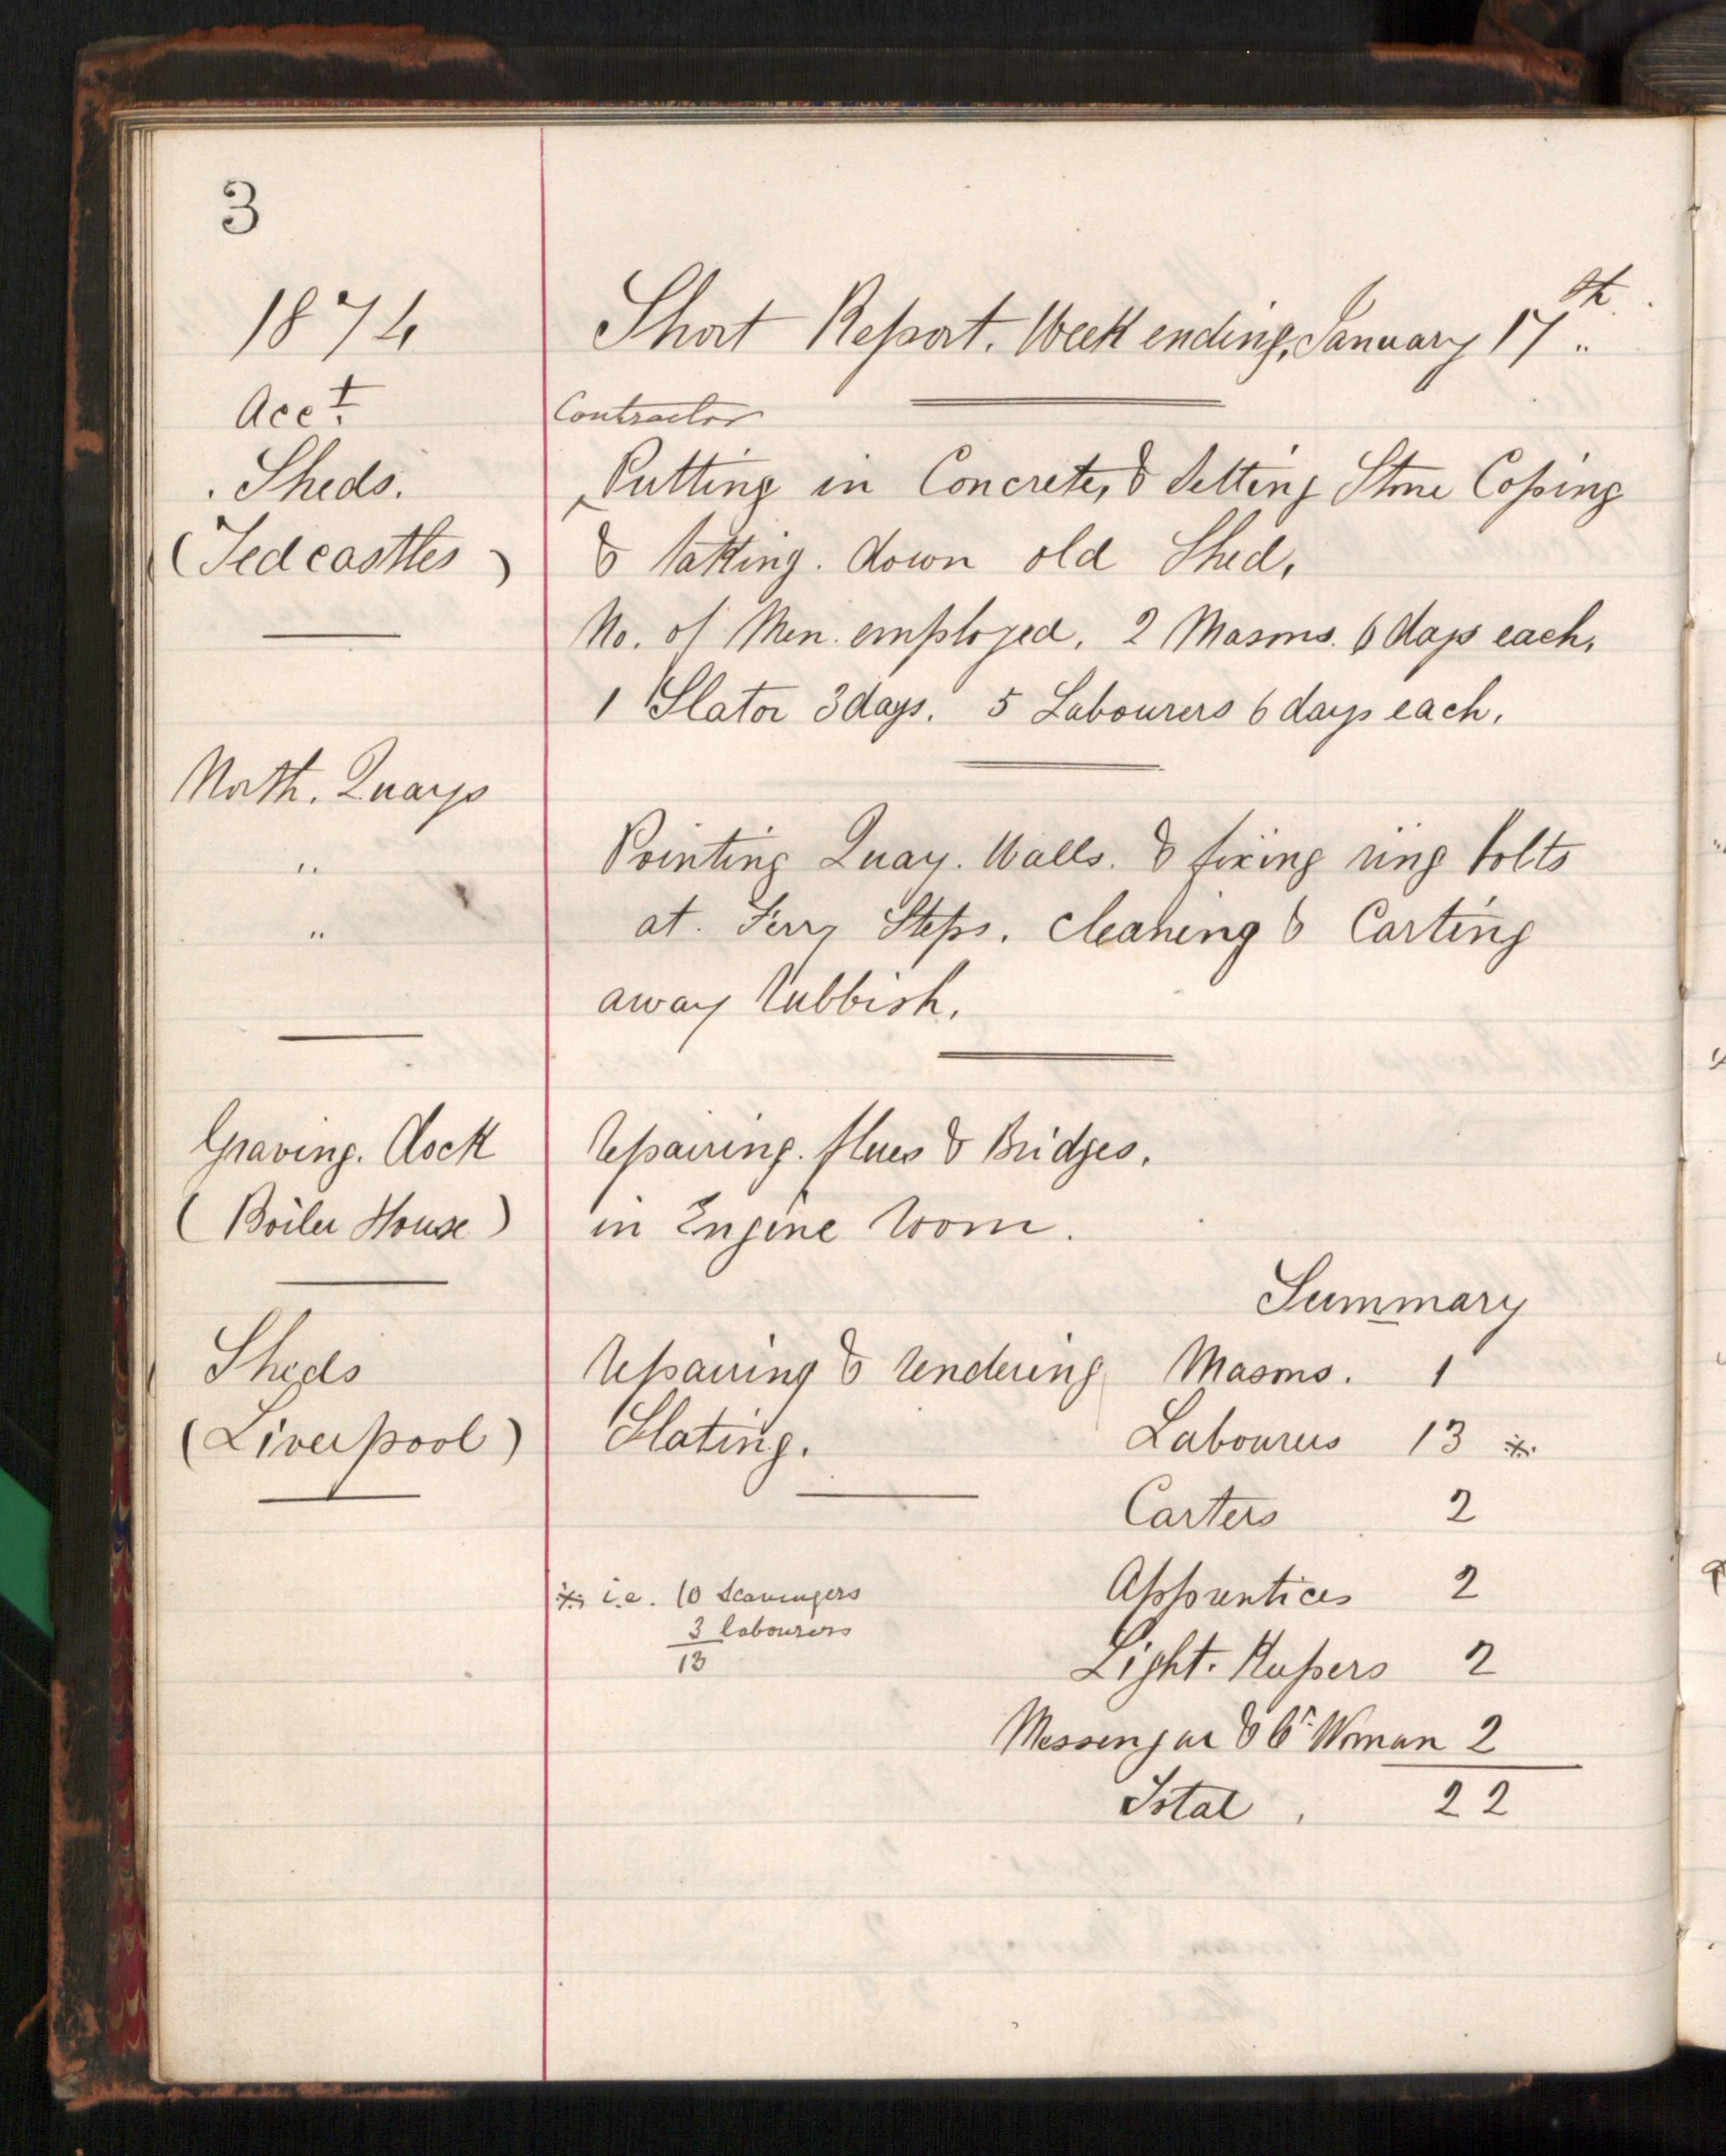 3
1874
Short Report. Week ending, January 17th
Acct.
Contractor
Sheds.
Putting in Concrete, & Setting Stone Coping
(Tedcastles)
& taking. down old Shed,
No. of Men. employed. 2 Masons. 6 days each,
1 Slator 3 days. 5 Labourers 6 days each.
North. Quays
" Pointing Quay. Walls. & fixing ring bolts
" at. Ferry Steps. Cleaning & Carting
away rubbish.
Graving. Dock
Repairing. flues & Bridges.
(Boiler House)
in Engine room.
Summary
Sheds
Repairing & rendering
Masons. 1
(Liverpool)
Slating.
Labourers 13 ※
Carters 2
※ i.e. 10 Scavengers
3 labourers
13
Apprentices 2
Light. Keepers 2
Messenger & Woman 2
Total 22